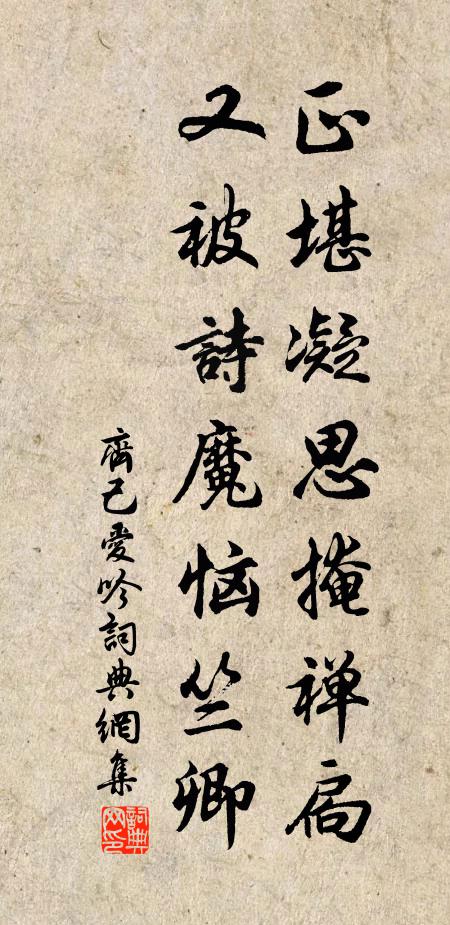 正堪凝思掩禅扃
又被詩魔恼竺卿
齊己愛吟詞典網集
詞典网印